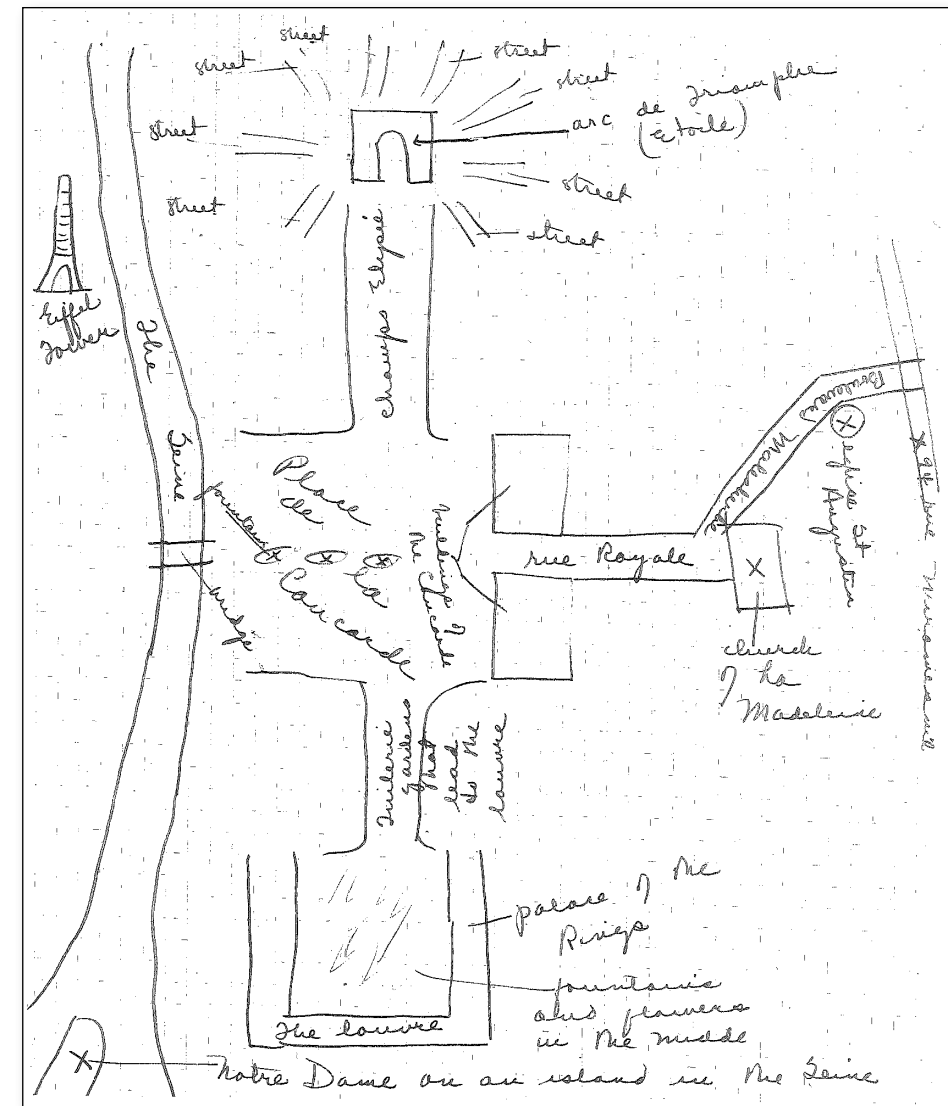 street
street
street
street
street
street
street
street
arc de Triomphe
(Etoile)
Eiffel
Tower
The
Seine
Champs Elysée
Place
de
la
Concorde
fountains
bridge
buildings of
the
rue Royale
Boulevard Malesherbes
eglise St
Augustin
94 rue
church
of La
Madeleine
Tuilerie
gardens
that
lead
to the
louvre
palace of the
Kings
fountains
and flowers
in the middle
The louvre
Notre Dame on an island in the Seine